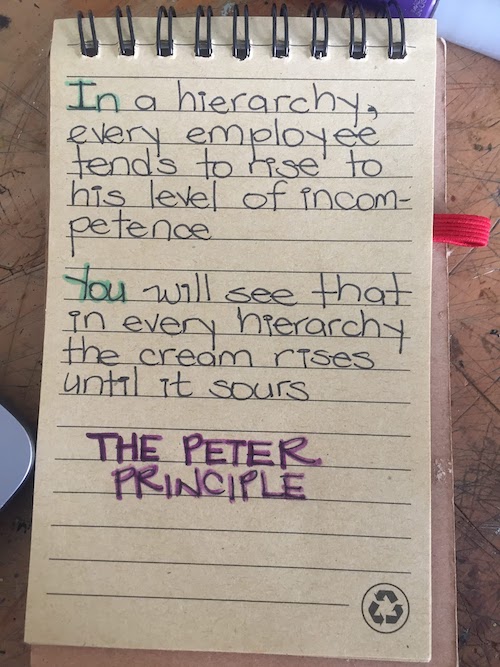 In a hierarchy,
every employee
tends to rise to
his level of incom-
petence
You will see that
in every hierarchy
the cream rises
until it sours
THE PETER
PRINCIPLE